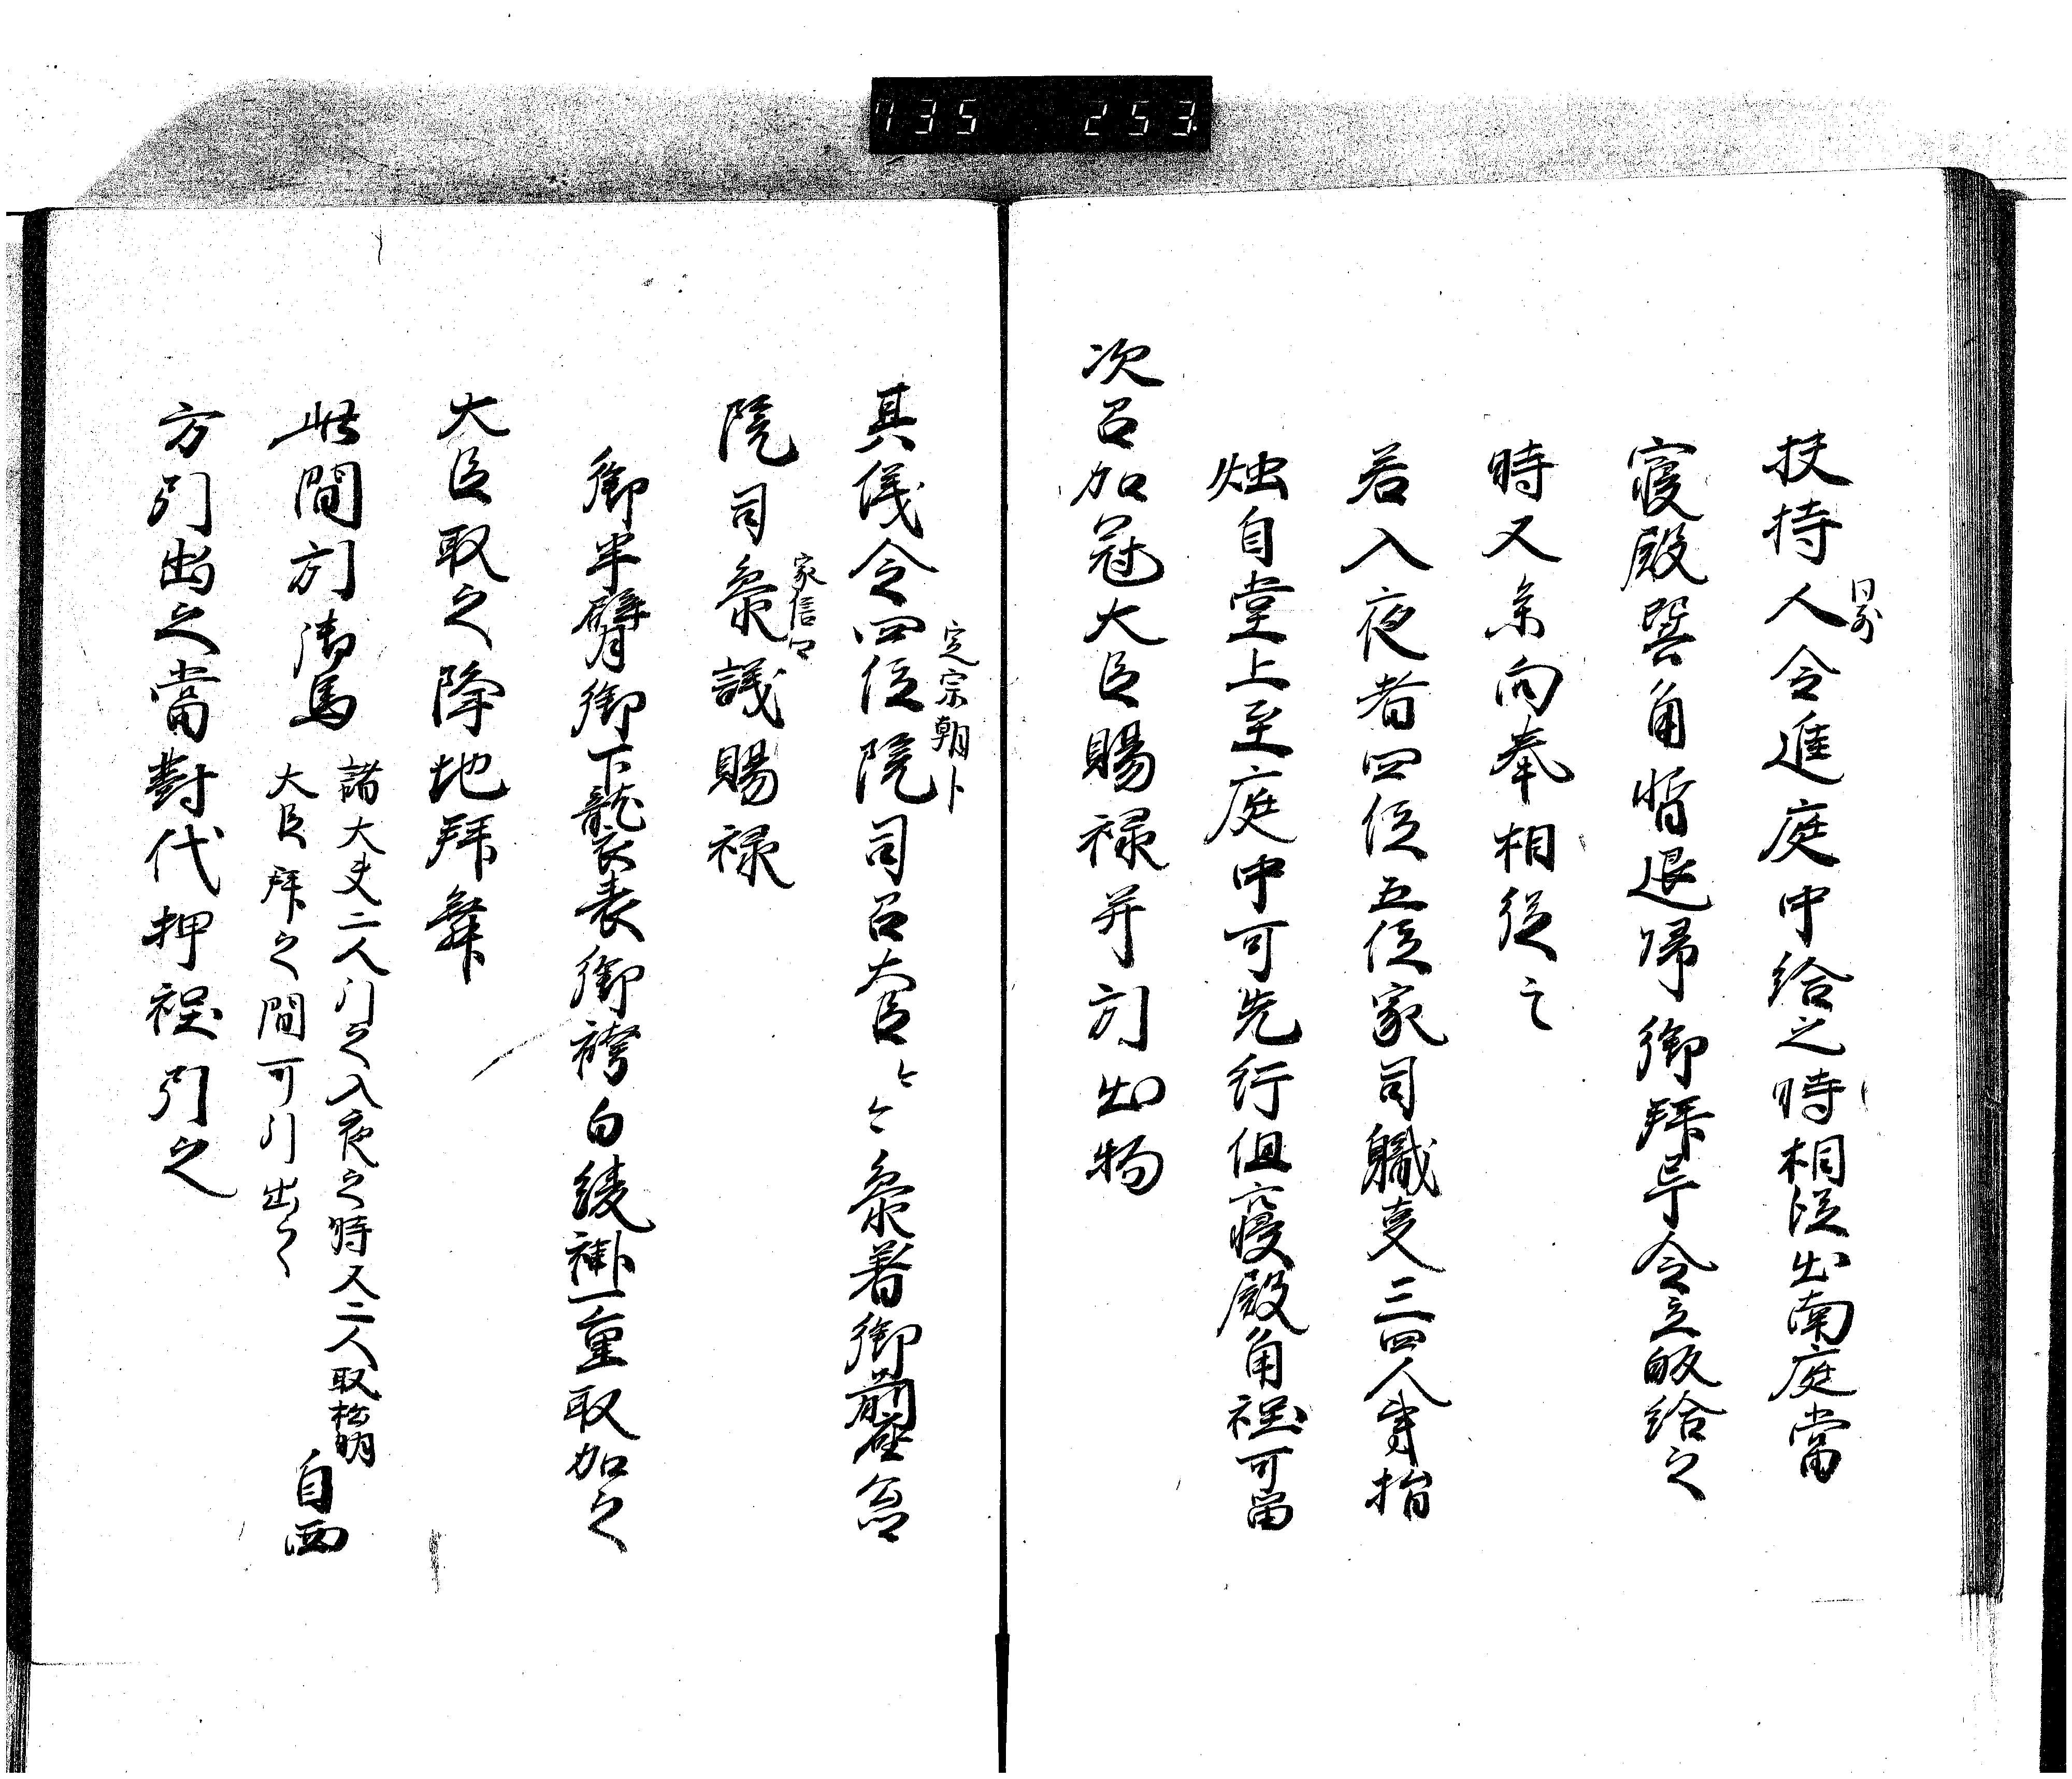 735 253
扶持人令進庭中給之時相従出南庭當
寝殿巽角暫退帰御拝了令立皈給之
時又参向奉相従之
若入夜者四位五位家司職事三四人指
燭自堂上至庭中可先行但寝殿角程可留
次召加冠大臣賜禄并引出物
定宗朝卜
其儀令四位院司召大臣〻〻参着御前座
家信口
院司参議賜禄
御半臂御下襲衣表御袴白綾褂一重取加之
大臣取之降地拝舞
此間引御馬
諸大夫二人引之入夜之時又二人取松明
大臣拝之間可引出之
自西
方引出之當對代押程引之